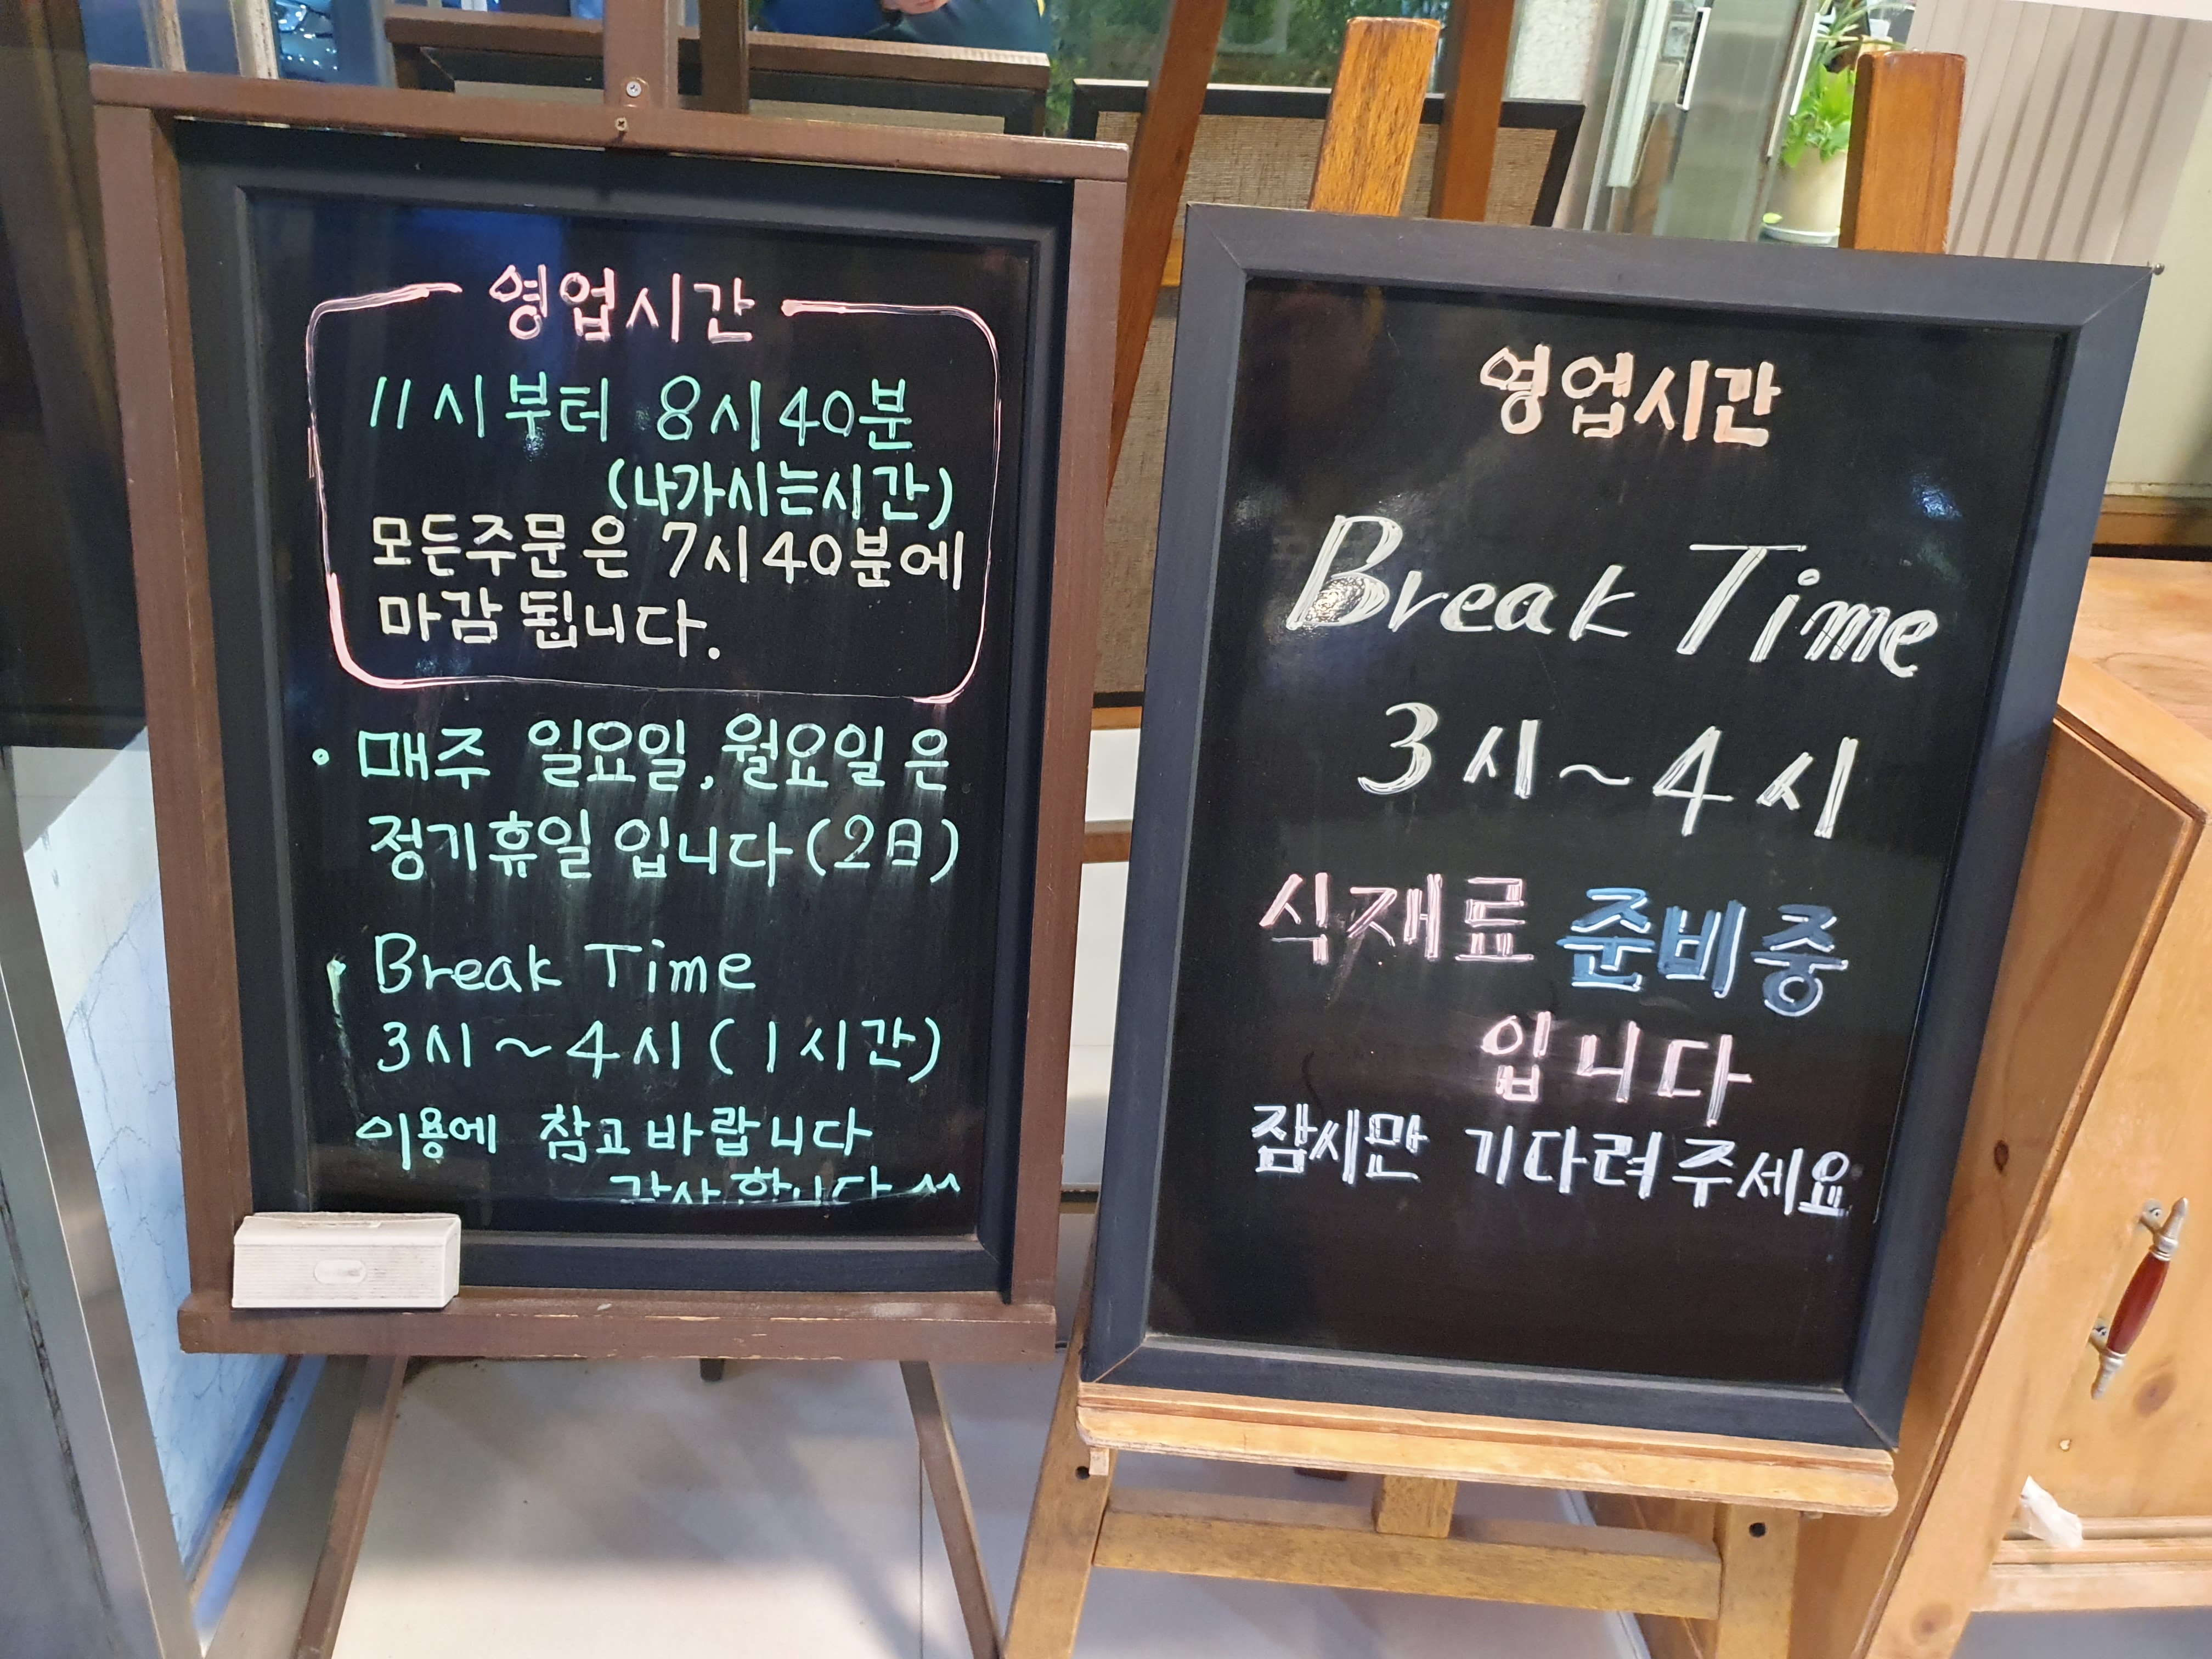 영업시간
11시부터 8시40분
(나가시는시간)
모든주문은 7시40분에
마감 됩니다.
• 매주 일요일, 월요일은
정기휴일 입니다(2日)
• Break Time
3시~4시(1시간)
이용에 참고바랍니다
감사합니다 ^^
영업시간
Break Time
3시~4시
식재료 준비중
입니다
잠시만 기다려주세요